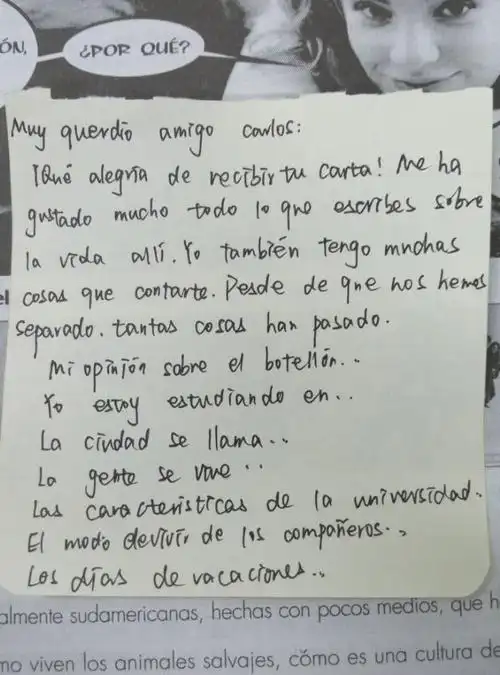 ÓN,
¿POR QUÉ?
Muy querdio amigo Carlos:
¡Qué alegría de recibir tu carta! Me ha
gustado mucho todo lo que escribes sobre
la vida allí. Yo también tengo muchas
el
cosas que contarte. Desde de que nos hemos
separado. tantas cosas han pasado.
Mi opinión sobre el botellón...
Yo estoy estudiando en..
La ciudad se llama..
La gente se vive ..
Las características de la universidad.
El modo devivir de los compañeros..,
Los días de vacaciones..
almente sudamericanas, hechas con pocos medios, que h
mo viven los animales salvajes, cómo es una cultura de